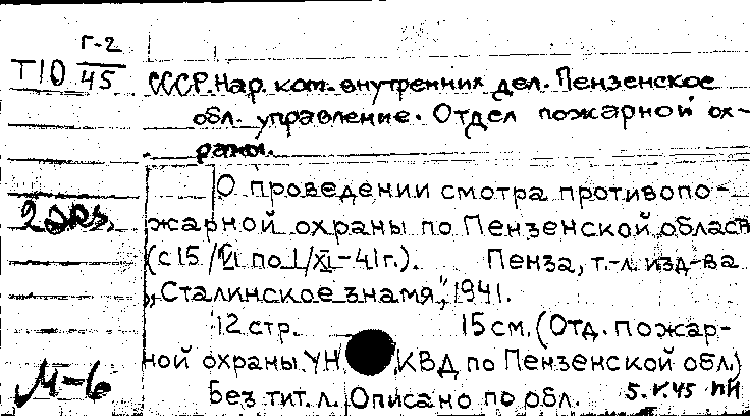 Г-2
Т10 45
СССР. Нар. ком. внутренних дел. Пензенское
обл. управление. Отдел пожарной ох-
раны.
О проведении смотра противопо-
2 экз. жарной охраны по Пензенской област
(с 15/VI по 1/XI-41г.). Пенза, т.-л. изд-ва
„Сталинское знамя", 1941.
12 стр. 15 см. (Отд. пожар-
ной охраны УН КВД по Пензенской обл.)
М-6
Без тит. л. Описано по обл. 5.V.45 пи